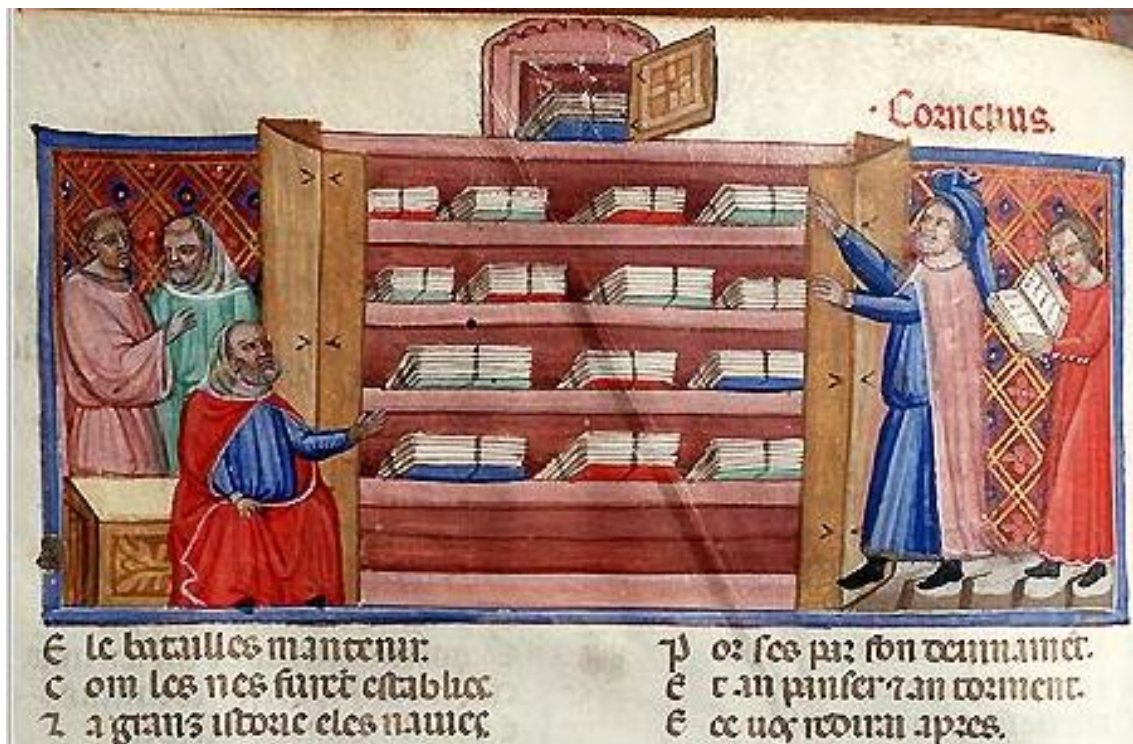 · Cornelius.
E le batailles mantenir.
C om les nes furēt establies
⁊ a granz istorie eles nauies
P or ses par son deuinamēt.
E t an panser ⁊ an torment.
E ce uos redirai apres.